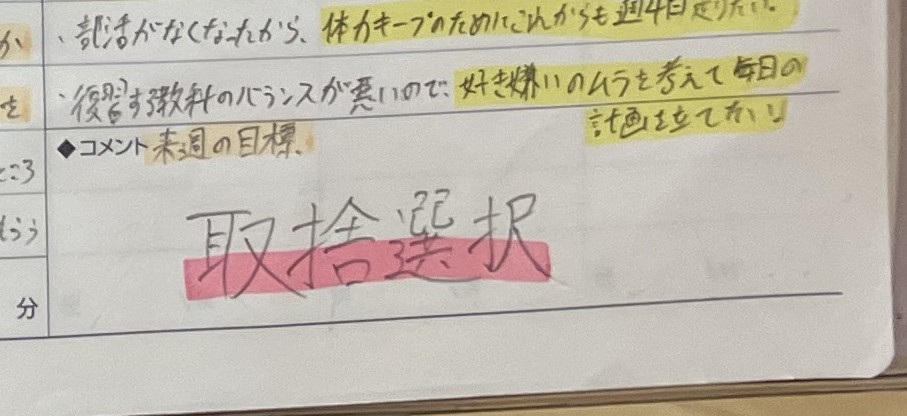 ・部活がなくなったから、体力キープのためにこれからも週4日走りたい。
か
・復習する教科のバランスが悪いので、好き嫌いのムラを考えて毎日の
計画を立てたい
を
◆コメント 来週の目標、
ころ
取捨選択
もらう
分